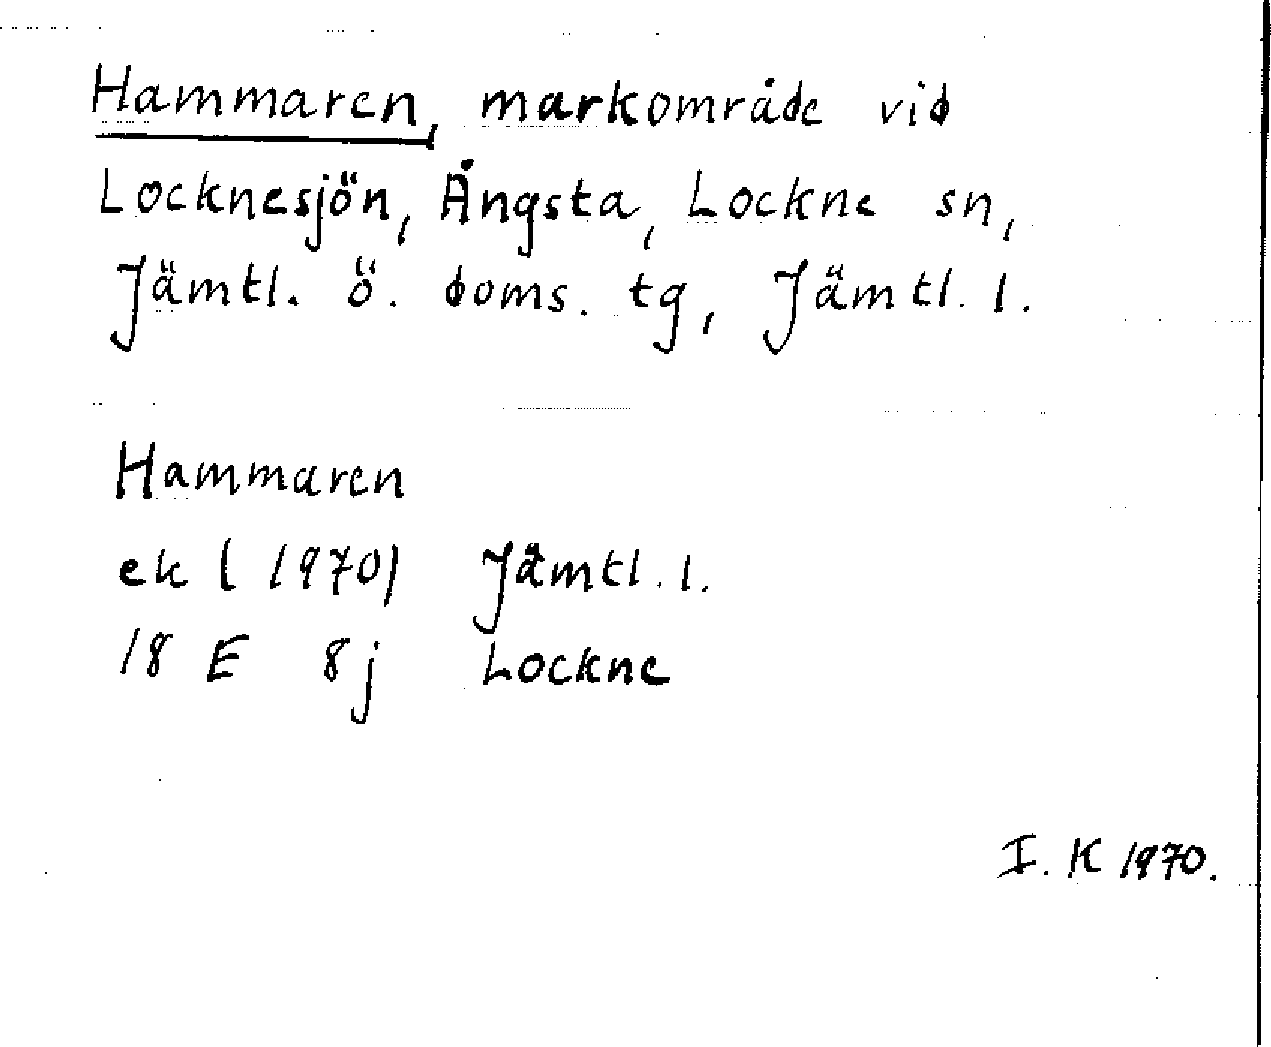 Hammaren, markområde vid
Locknesjön, Ångsta, Lockne sn,
Jämtl. ö. doms. tg, Jämtl. l.
Hammaren
ek (1970) Jämtl. l.
18 E 8j Lockne
I. K 1970.